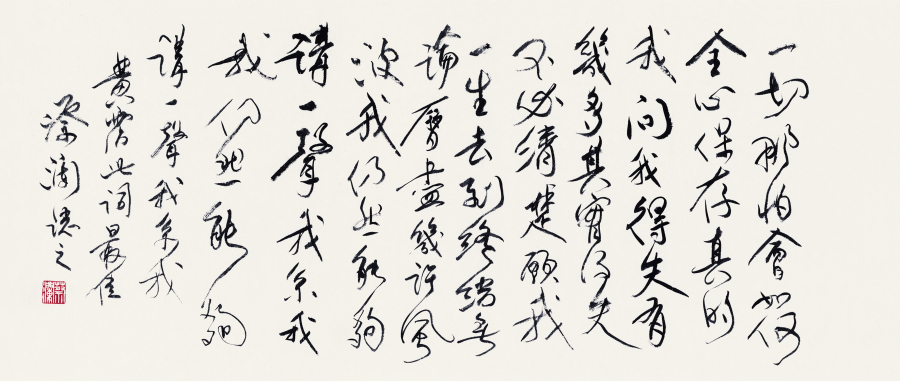 一切那怕會如何
全心保存真的
我問我得失有
幾多其實得失
不必清楚願我
一生去到終結無
論歷盡幾許風
波我仍然能夠
講一聲我系我
我仍然能夠
講一聲我系我
黄霑此詞最佳
誌之